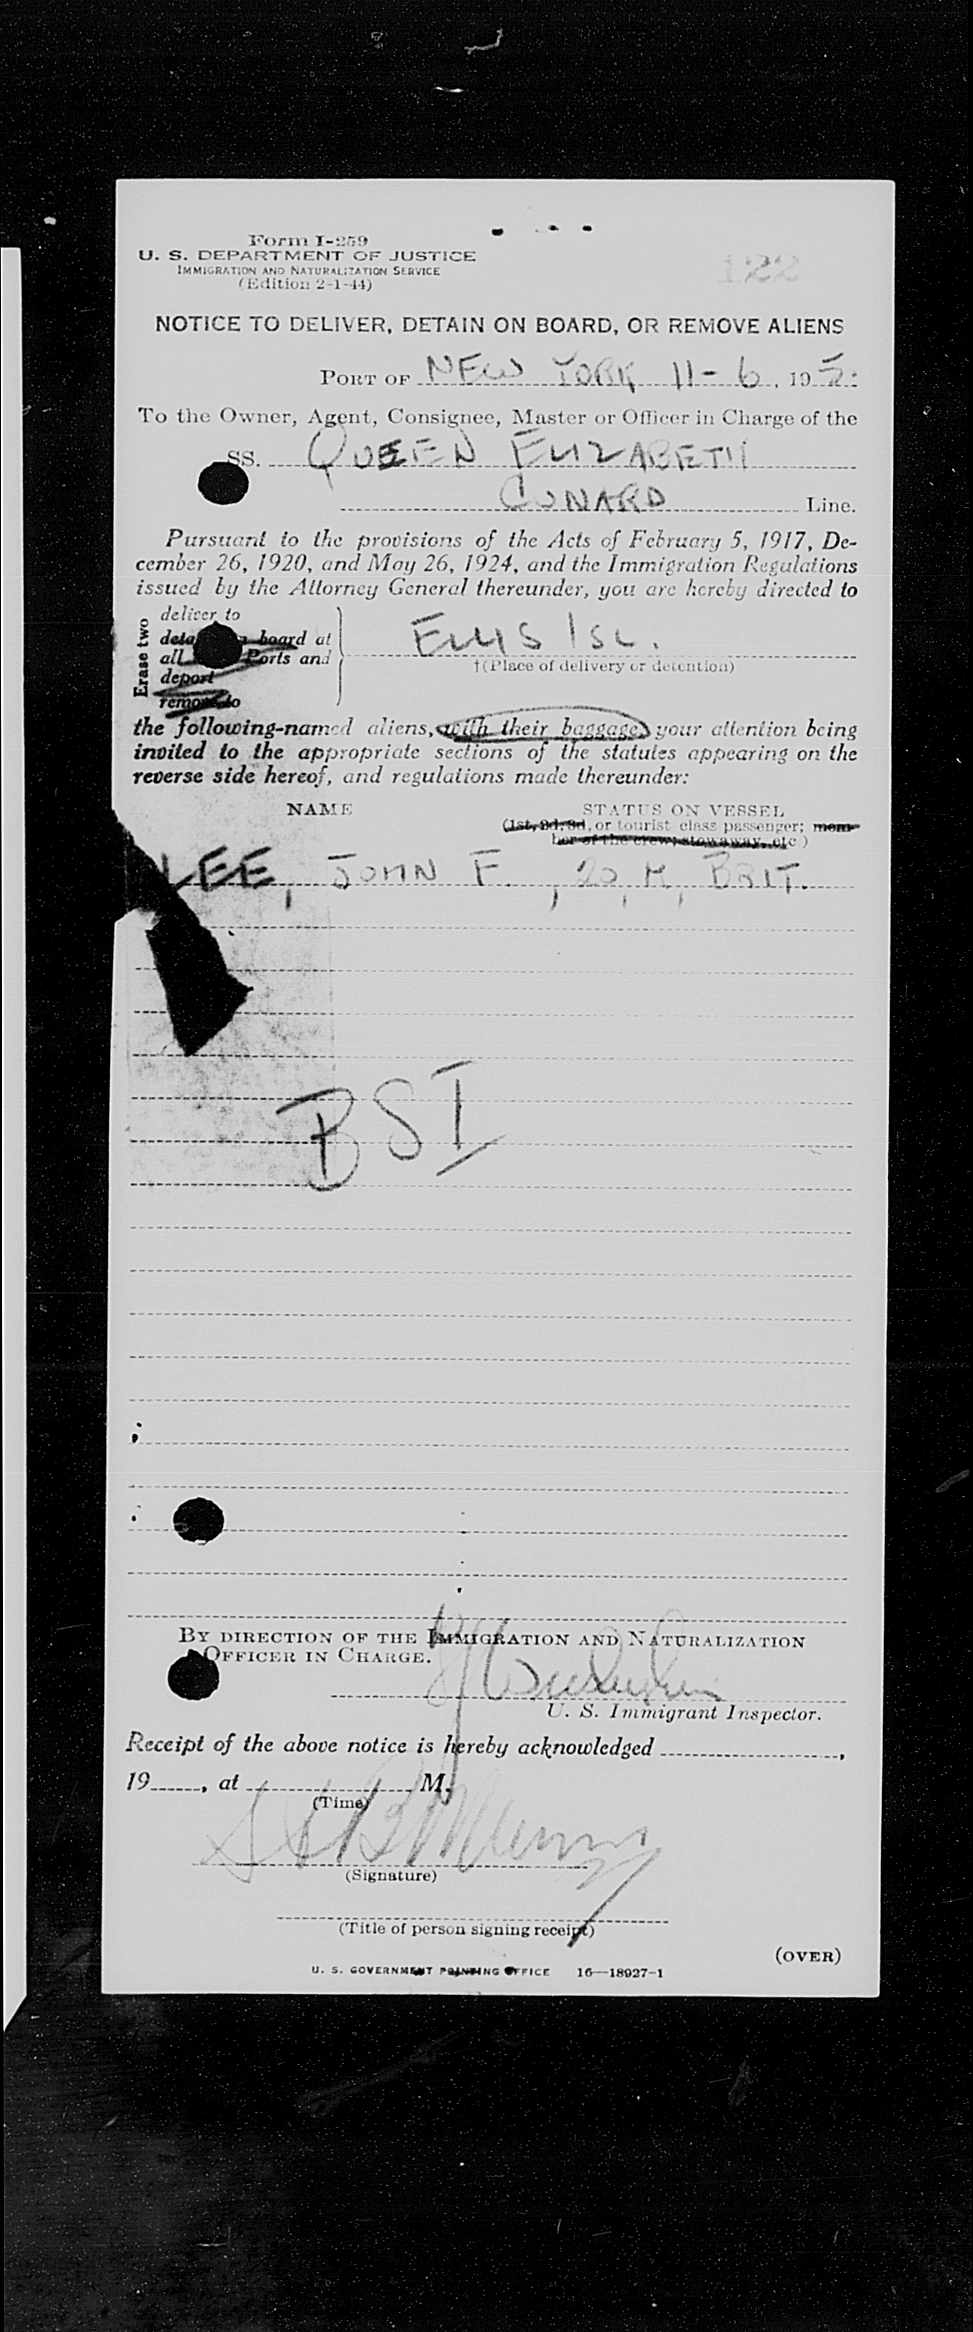 Form I-259
U. S. DEPARTMENT OF JUSTICE
IMMIGRATION AND NATURALIZATION SERVICE
(Edition 2-1-44)
122
NOTICE TO DELIVER, DETAIN ON BOARD, OR REMOVE ALIENS
PORT OF NEW YORK 11-6, 195
To the Owner, Agent, Consignee, Master or Officer in Charge of the
SS. QUEEN ELIZABETH
CUNARD Line.
Pursuant to the provisions of the Acts of February 5, 1917, De-
cember 26, 1920, and May 26, 1924, and the Immigration Regulations
issued by the Attorney General thereunder, you are hereby directed to
Erase two
deliver to
board at
all Ports and
deport
remove to
ELLIS ISL.
†(Place of delivery or detention)
the following-named aliens, with their baggage, your attention being
invited to the appropriate sections of the statutes appearing on the
reverse side hereof, and regulations made thereunder:
NAME STATUS ON VESSEL
(1st, 2d, 3d, or tourist class passenger; mem-
ber of the crew; stowaway, etc)
LEE, JOHN F., 20, M, BRIT.
BSI
BY DIRECTION OF THE IMMIGRATION AND NATURALIZATION
OFFICER IN CHARGE.
U. S. Immigrant Inspector.
Receipt of the above notice is hereby acknowledged ,
19 , at M.
(Time)
(Signature)
(Title of person signing receipt)
(OVER)
U. S. GOVERNMENT PRINTING OFFICE 16—18927-1